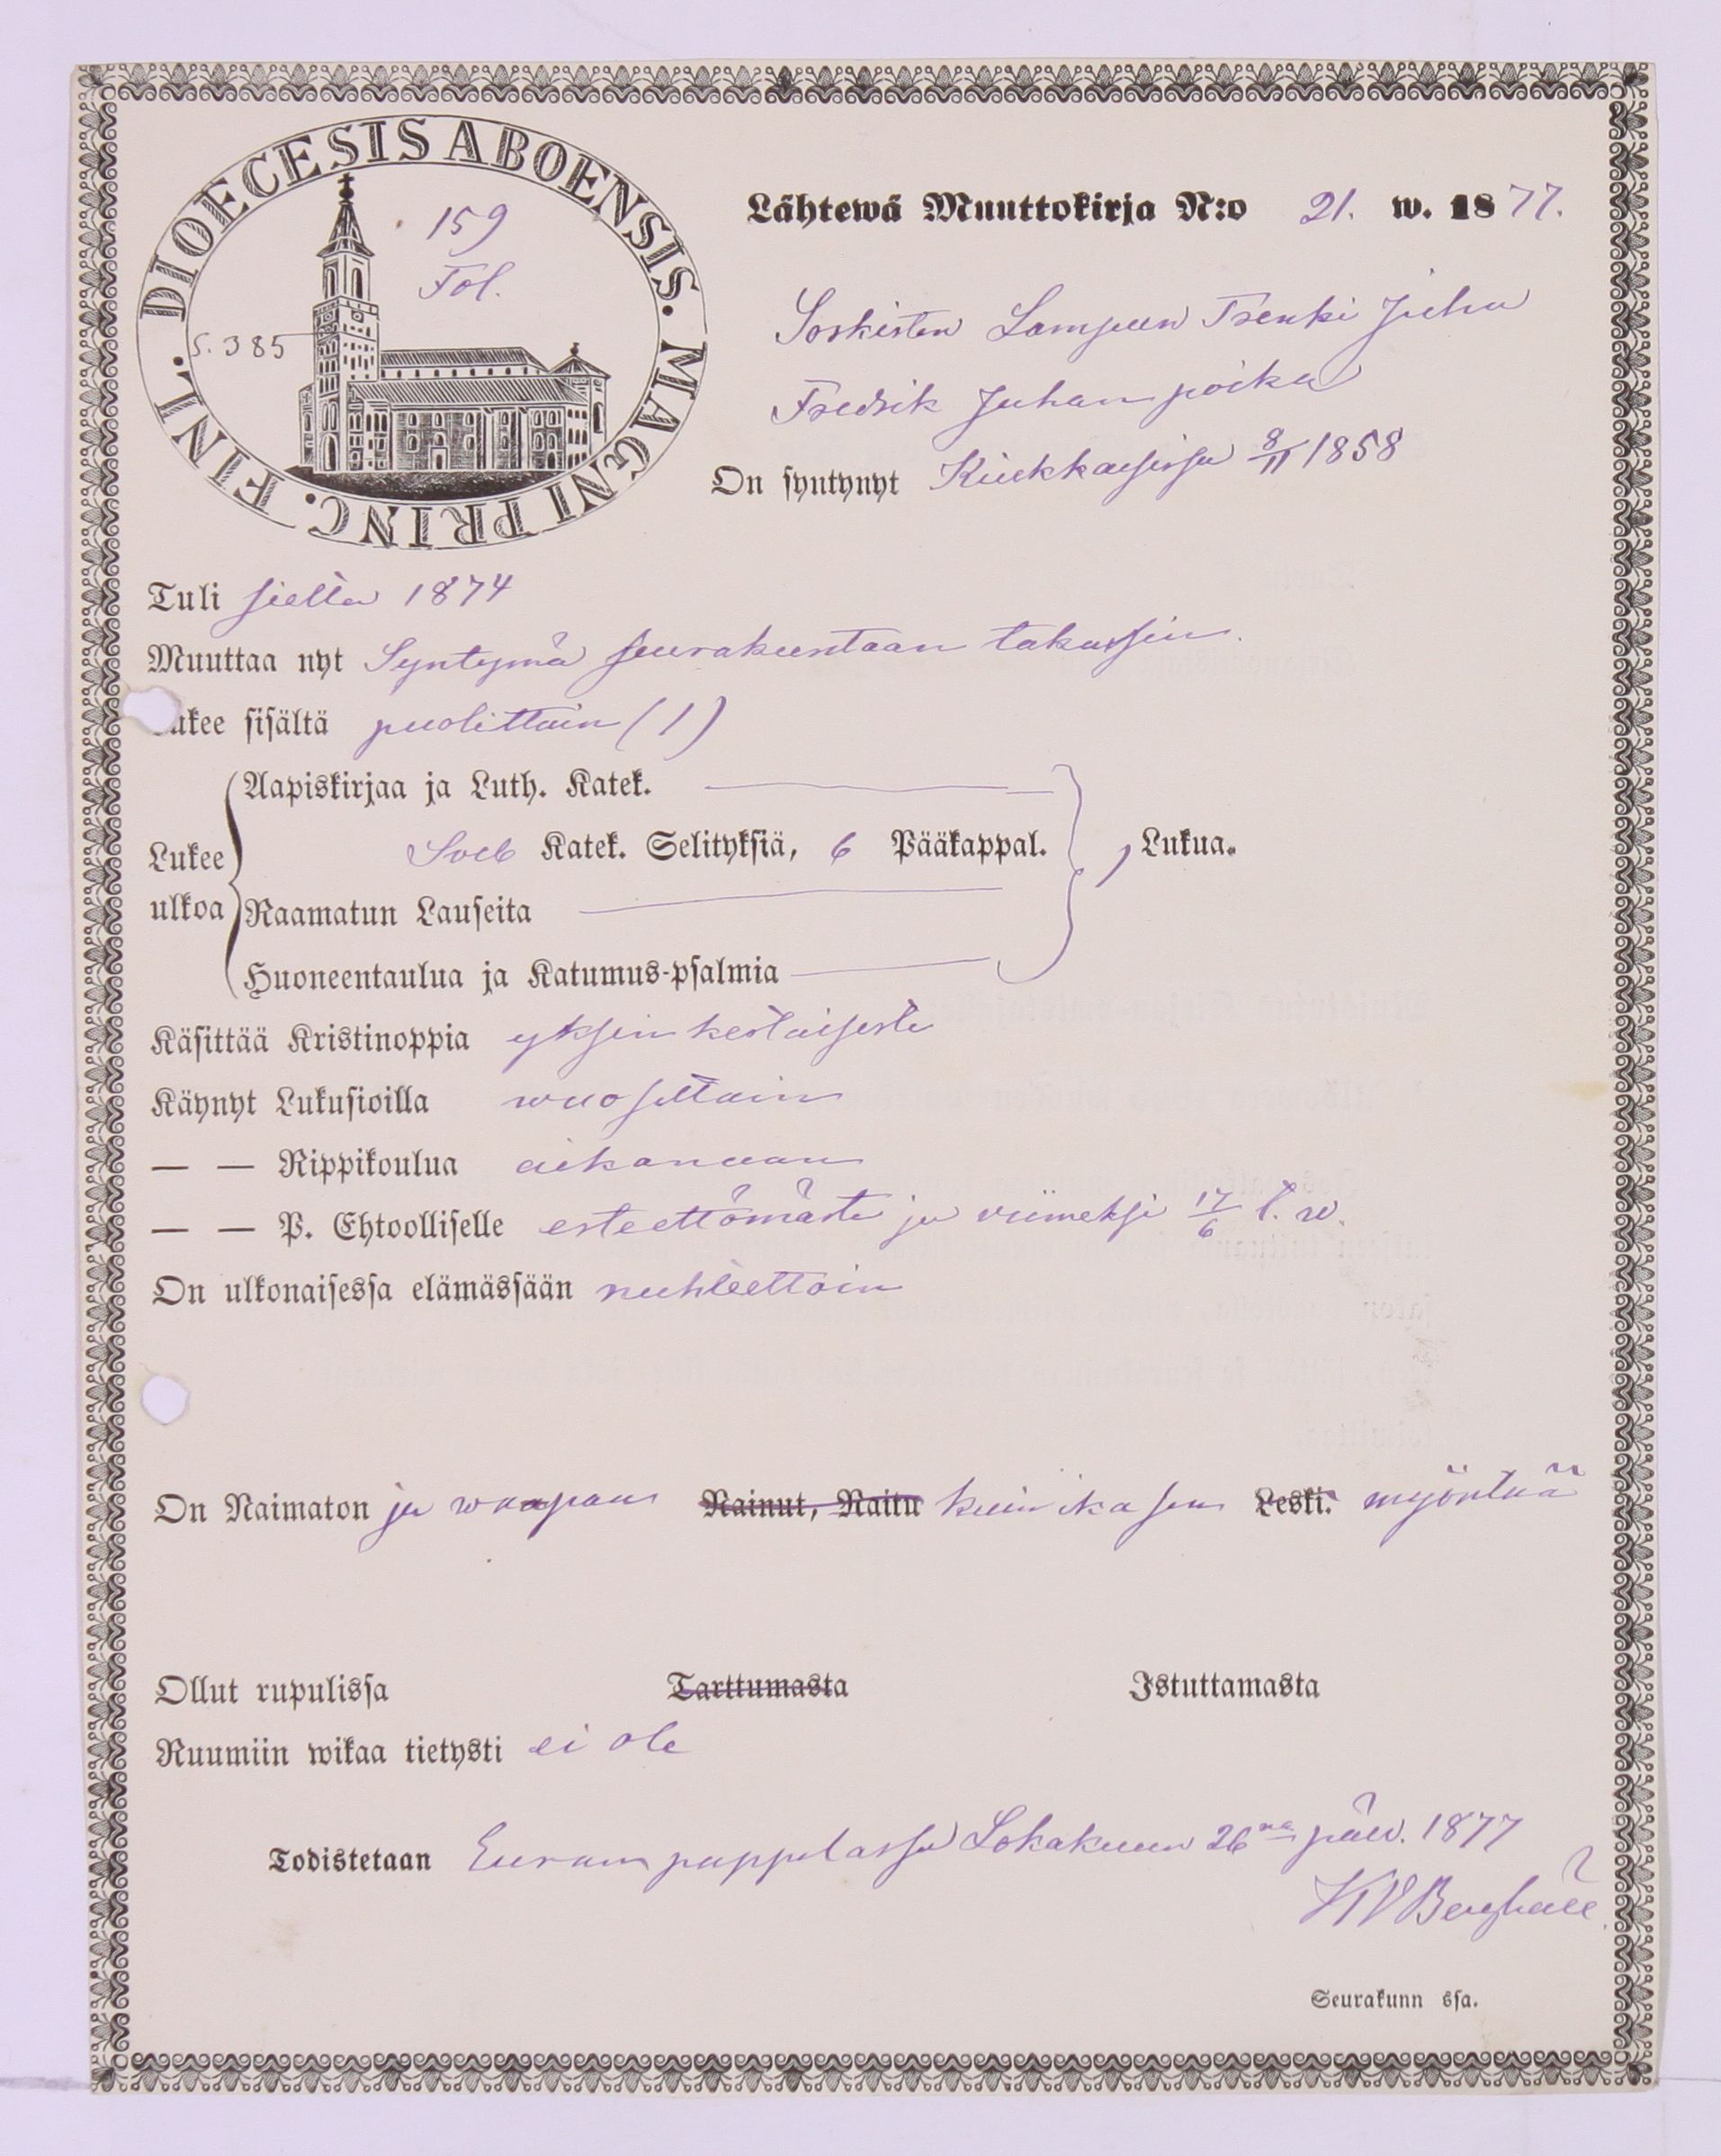 DIOECESIS ABOENSIS. MAGNI PRINC. FINL.
159
Fol.
S. 385
Lähtewä Muuttokirja N:o 21. w. 1877.
Sorkisten Lampun Trenki Juha
Fredrik Juhan poika
On syntynyt Kiukkaisissa 8/11 1858
Tuli sieltä 1874
Muuttaa nyt Syntymä seurakuntaan takasin.
ukee sisältä puolittain (1)
Aapiskirjaa ja Luth. Katek.
Lukee
Katek. Selityksiä, 6 Pääkappal.
1 Lukua.
ulkoa
Raamatun Lauseita
Huoneentaulua ja Katumus-psalmia
Käsittää Kristinoppia yksinkertaisesti
Käynyt Lukusioilla wuosittain
— — Rippikoulua aikanaan
— — P. Ehtoolliselle esteettömästi ja viimeksi 17/6 t. w.
On ulkonaisessa elämässään nuhteettoin
On Naimaton ja waapaa Nainut, Naitu kuin ikä sen Leski. myöntää
Ollut rupulissa Tarttumasta Istuttamasta
Ruumiin wikaa tietysti ei ole
Todistetaan Euran pappilassa Lokakuun 26na päiv. 1877
KV Berghäll
Seurakunn ssa.